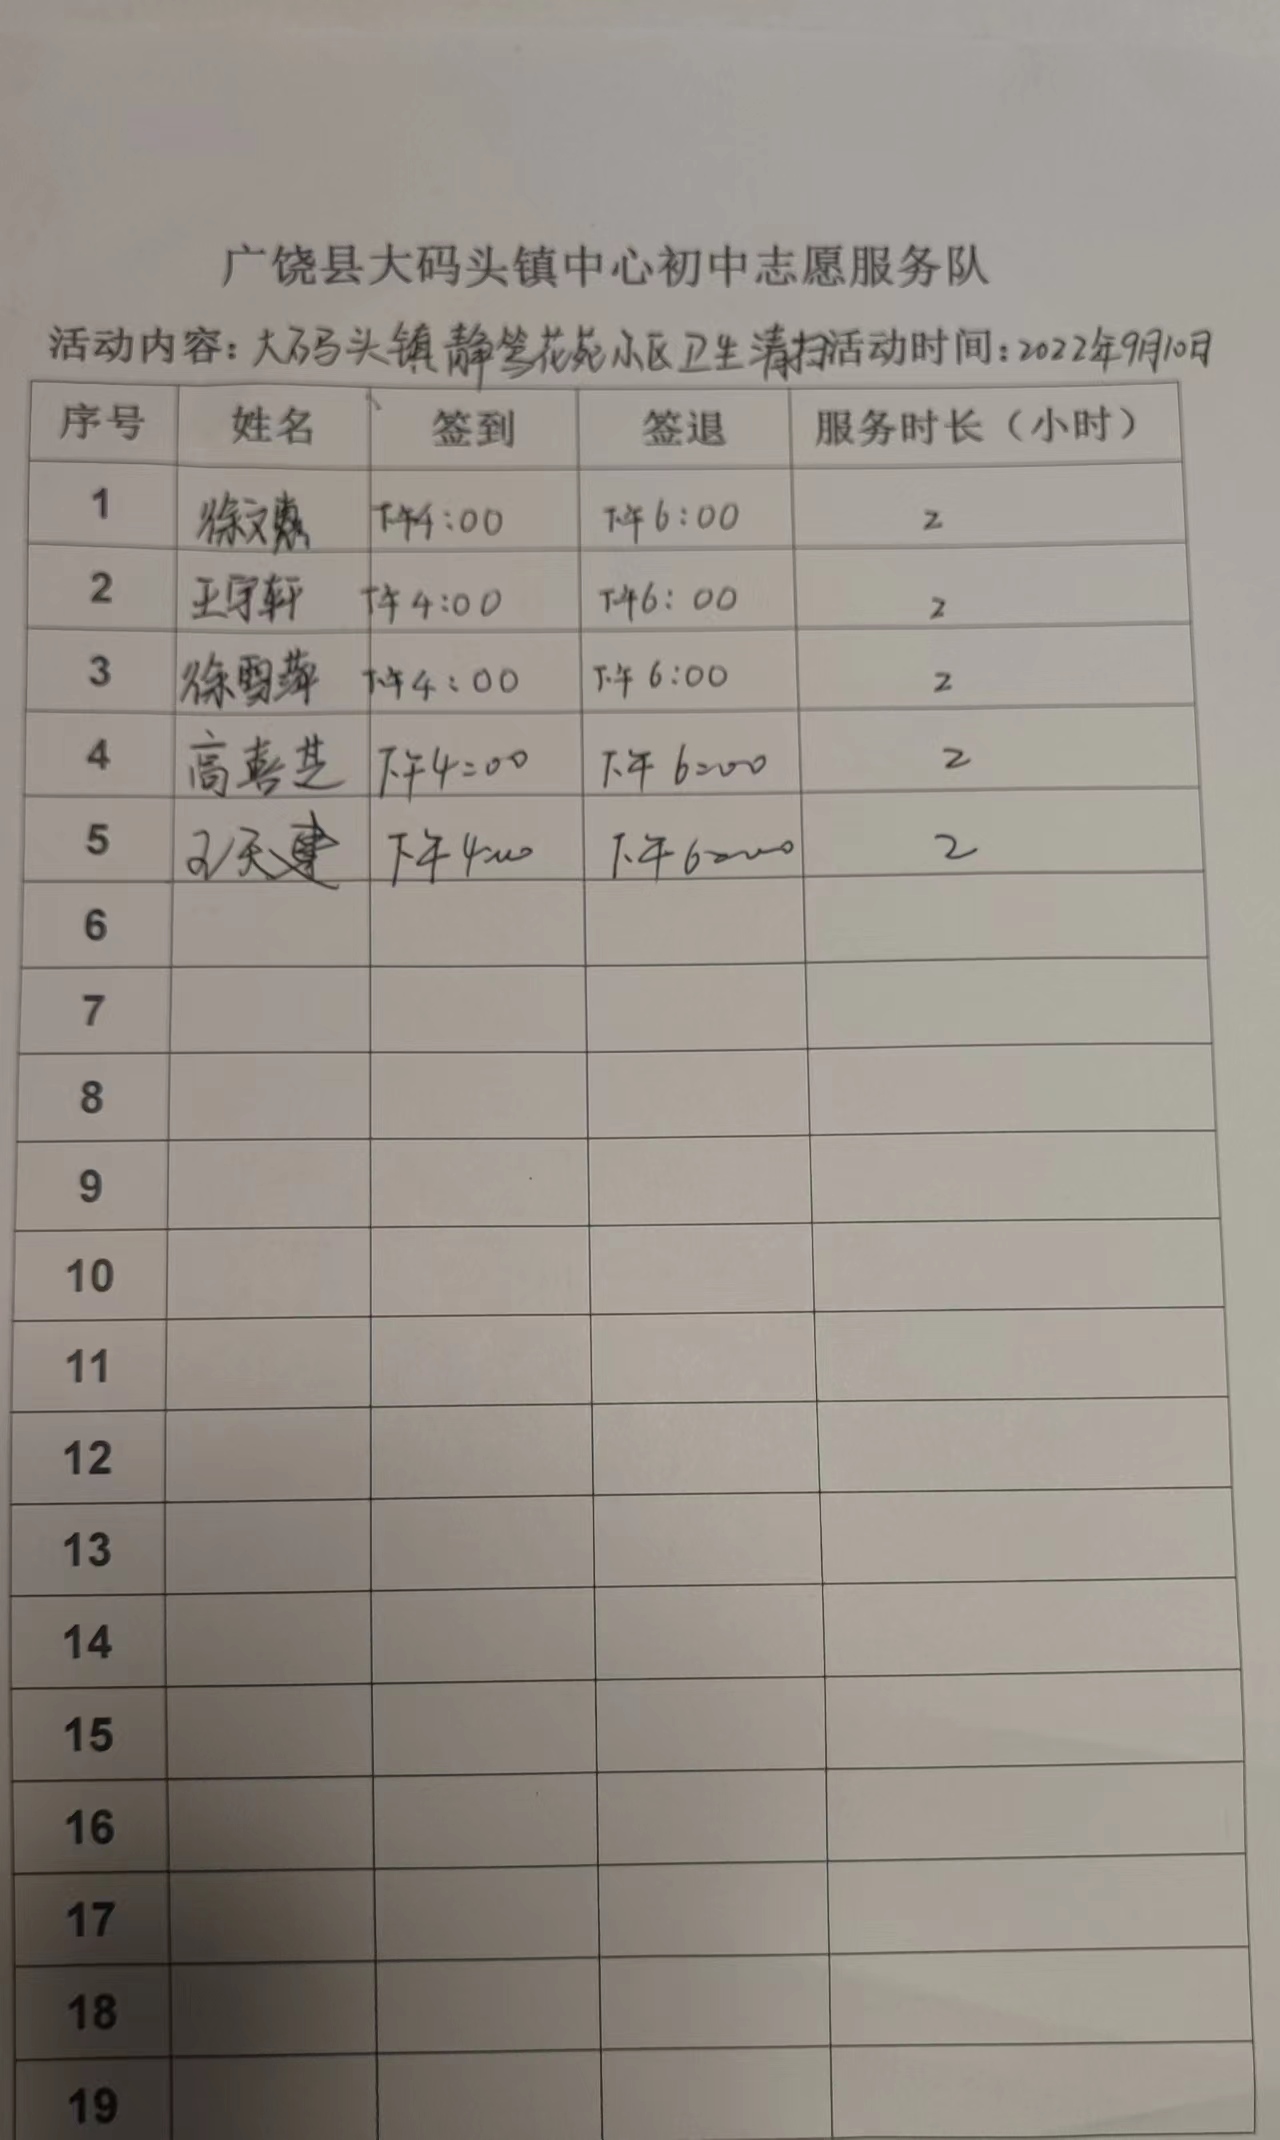 广饶县大码头镇中心初中志愿服务队
活动内容：大码头镇静笃花苑小区卫生清扫活动时间：2022年9月10日
序号 姓名 签到 签退 服务时长（小时）
1 徐文 下午4:00 下午6:00 2
2 王宇轩 下午4:00 下午6:00 2
3 徐雪萍 下午4:00 下午6:00 2
4 高喜芝 下午4:00 下午6:00 2
5 天 下午4:00 下午6:00 2
6
7
8
9
10
11
12
13
14
15
16
17
18
19